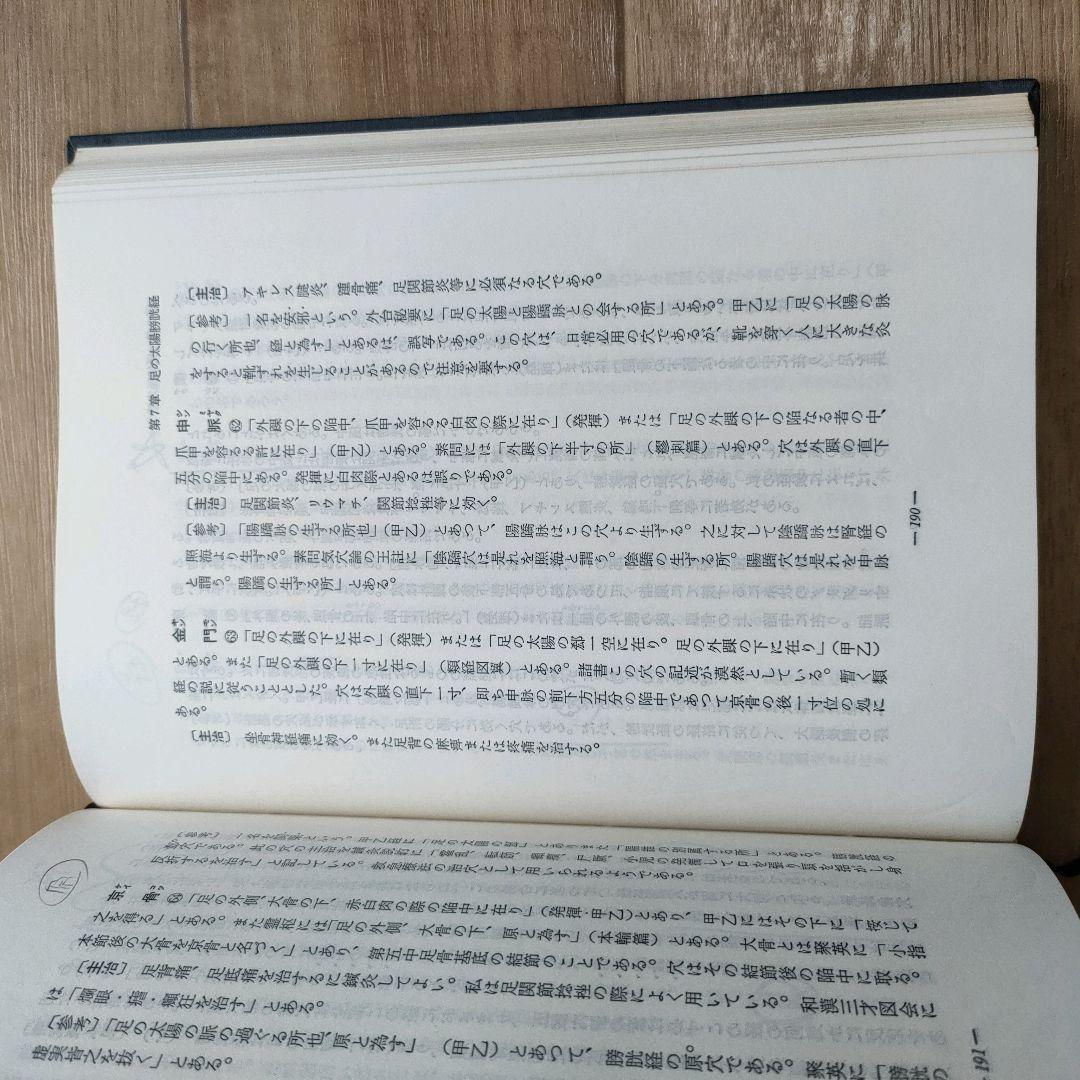 第7章 足の太陽膀胱経
〔主治〕 アキレス腱炎、踵骨痛、足関節炎等に必須なる穴である。
〔参考〕 一名を安邪という。外台秘要に「足の太陽と陽蹻脉との会する所」とある。甲乙に「足の太陽の脉
の行く所也、経と為す」とあるは、誤写である。この穴は、日常必用の穴であるが、靴を穿く人に大きな灸
をすると靴ずれを生じることがあるので注意を要する。
申脈 62「外踝の下の陥中、爪甲を容るる白肉の際に在り」(発揮)または「足の外踝の下の陥なる者の中、
爪甲を容るる許に在り」(甲乙)とある。素問には「外踝の下半寸の所」(繆刺篇)とある。穴は外踝の直下
五分の陥中にある。発揮に白肉際とあるは誤りである。
〔主治〕 足関節炎、リウマチ、関節捻挫等に効く。
〔参考〕「陽蹻脉の生ずる所也」(甲乙)とあって、陽蹻脉はこの穴より生ずる。之に対して陰蹻脉は腎経の
照海より生ずる。素問気穴論の王註に「陰蹻穴は是れを照海と謂う。陰蹻の生ずる所。陽蹻穴は是れを申脉
と謂う。陽蹻の生ずる所」とある。
金門 63「足の外踝の下に在り」(発揮)または「足の太陽の郄一空に在り。足の外踝の下に在り」(甲乙)
とある。また「足の外踝の下一寸に在り」(類経図翼)とある。諸書この穴の記述が漠然としている。暫く類
経の説に従うこととした。穴は外踝の直下一寸、即ち申脉の前下方五分の陥中であって京骨の後一寸位の処に
ある。
〔主治〕 坐骨神経痛に効く。また足背の麻痺または疼痛を治する。
—190—
〔参考〕 一名を関梁という。甲乙経に「足の太陽の郄」とあり
反折するを治す」と記している。救急療法の治穴として用いられるようである。
京骨 64「足の外側、大骨の下、赤白肉の際の陥中に在り」(発揮・甲乙)とあり、甲乙にはその下に「按じて
之を得る」とある。また霊枢には「足の外側、大骨の下、原と為す」(本輸篇)とある。大骨とは聚英に「小指
本節後の大骨を京骨と名づく」とあり、第五中足骨基底の結節のことである。穴はその結節後の陥中に取る。
〔主治〕 足背痛、足底痛を治するに鍼灸してよい。私は足関節捻挫の際によく用いている。和漢三才図会に
は「癎眼・瘧・癲狂を治す」とある。
〔参考〕「足の太陽の脈の過ぐる所也、原と為す」(甲乙)とあって、膀胱経の原穴である。聚英に「膀胱の
虚実皆之を抜く」とある。
—191—